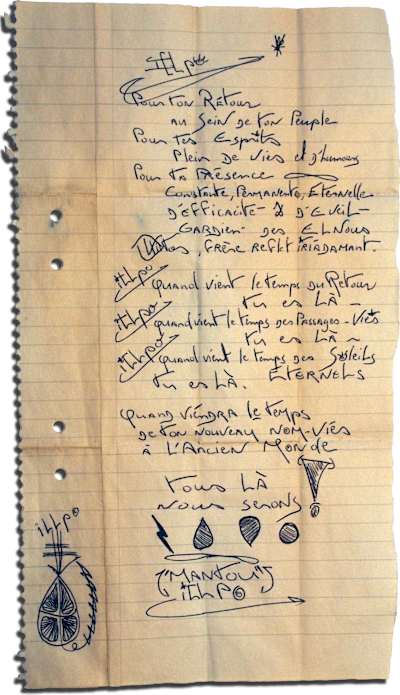 Pour ton Retour
au Sein de ton Peuple
Pour tes Esprits
Plein de Vies et d'humours
Pour ta Présence
Constante, Permanente, Eternelle
D'Efficacité - & D'Eveil -
Gardien des
, frère reflet
quand vient le temps du Retour
tu es Là -
quand vient le temps des Passages-Vies
tu es Là ~
quand vient le temps des Soleils
tu es Là. Eternels
quand viendra le temps
de ton nouveau nom-Vies
à l'Ancien Monde
tous Là
nous serons !
("Manitou")
iLLpo
iLLpo